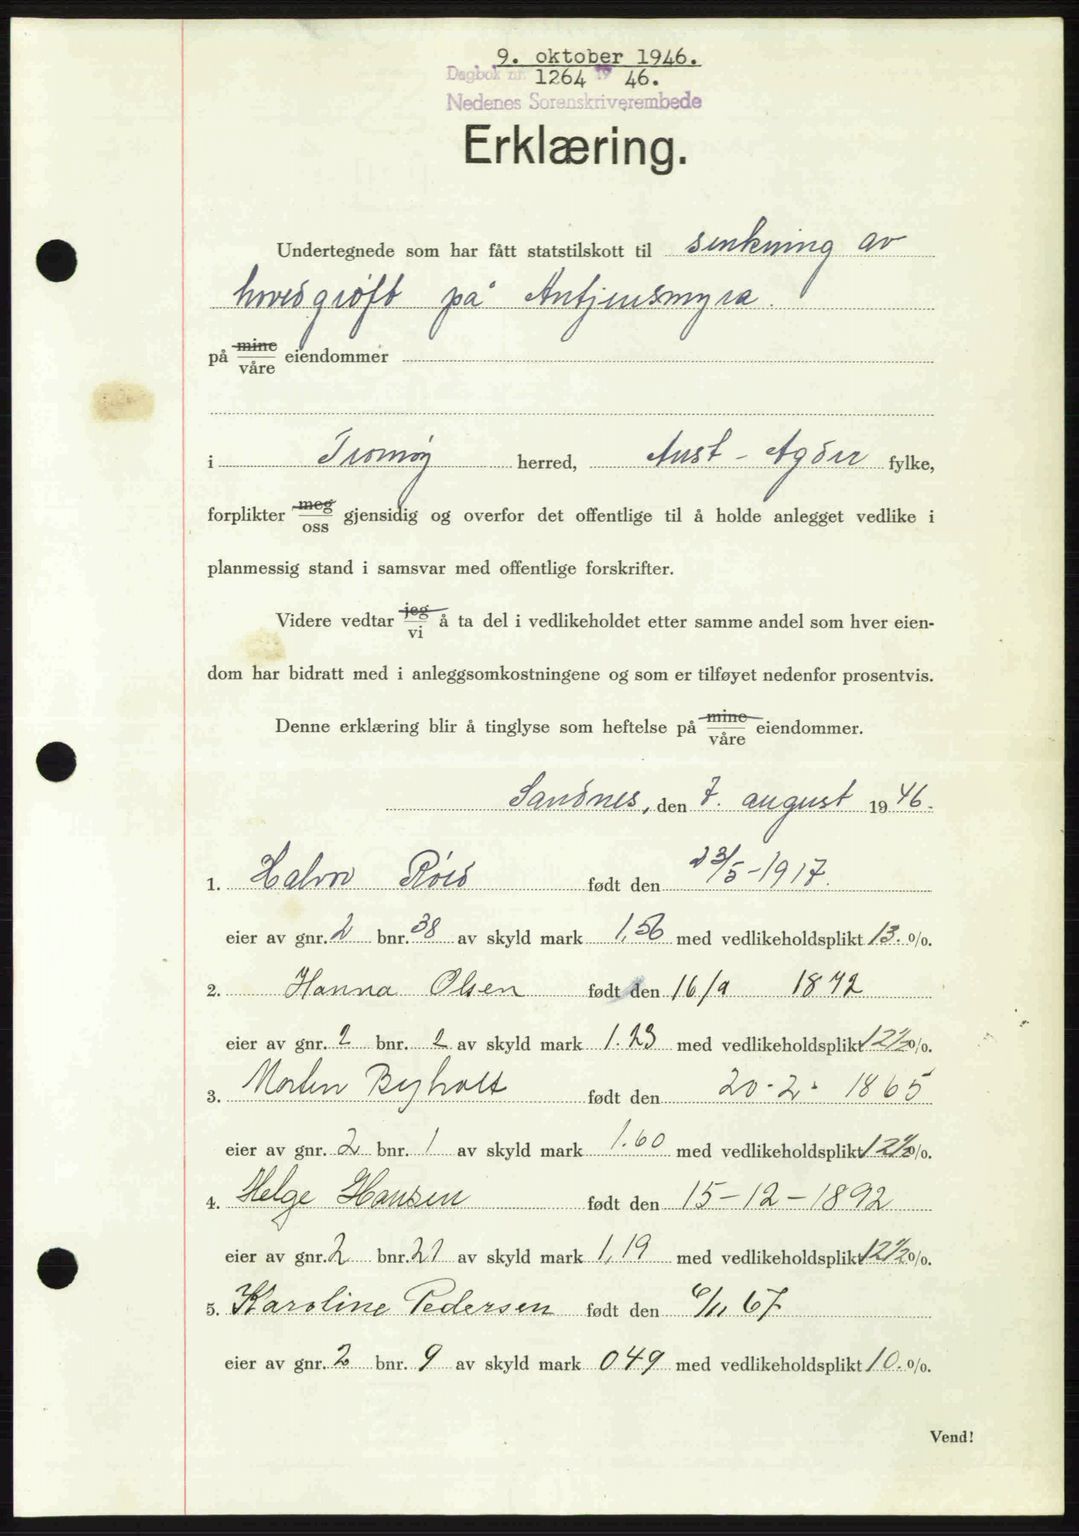 9. oktober 1946.
Dagbok nr. 1264 19 46.
Nedenes Sorenskriverembede
Erklæring.
Undertegnede som har fått statstilskott til senkning av
hovedgrøft på Antjensmyra.
på mine/våre eiendommer
i Tromøy herred, Aust-Agder fylke,
forplikter meg/oss gjensidig og overfor det offentlige til å holde anlegget vedlike i
planmessig stand i samsvar med offentlige forskrifter.
Videre vedtar jeg/vi å ta del i vedlikeholdet etter samme andel som hver eien-
dom har bidratt med i anleggsomkostningene og som er tilføyet nedenfor prosentvis.
Denne erklæring blir å tinglyse som heftelse på mine/våre eiendommer.
Sandnes, den 7. august 1946.
1. Halvor Røed født den 23/5-1917.
eier av gnr. 2 bnr. 38 av skyld mark 1,56 med vedlikeholdsplikt 13. %.
2. Hanna Olsen født den 16/9 1872
eier av gnr. 2 bnr. 2 av skyld mark 1.23 med vedlikeholdsplikt 12½%.
3. Morten Byholt født den 20-2-1865
eier av gnr. 2 bnr. 1 av skyld mark 1.60 med vedlikeholdsplikt 12½%.
4. Helge Hansen født den 15-12-1892
eier av gnr. 2 bnr. 21 av skyld mark 1,19 med vedlikeholdsplikt 12½%.
5. Karoline Pedersen født den 6/11 67
eier av gnr. 2 bnr. 9 av skyld mark 049 med vedlikeholdsplikt 10. %.
Vend!